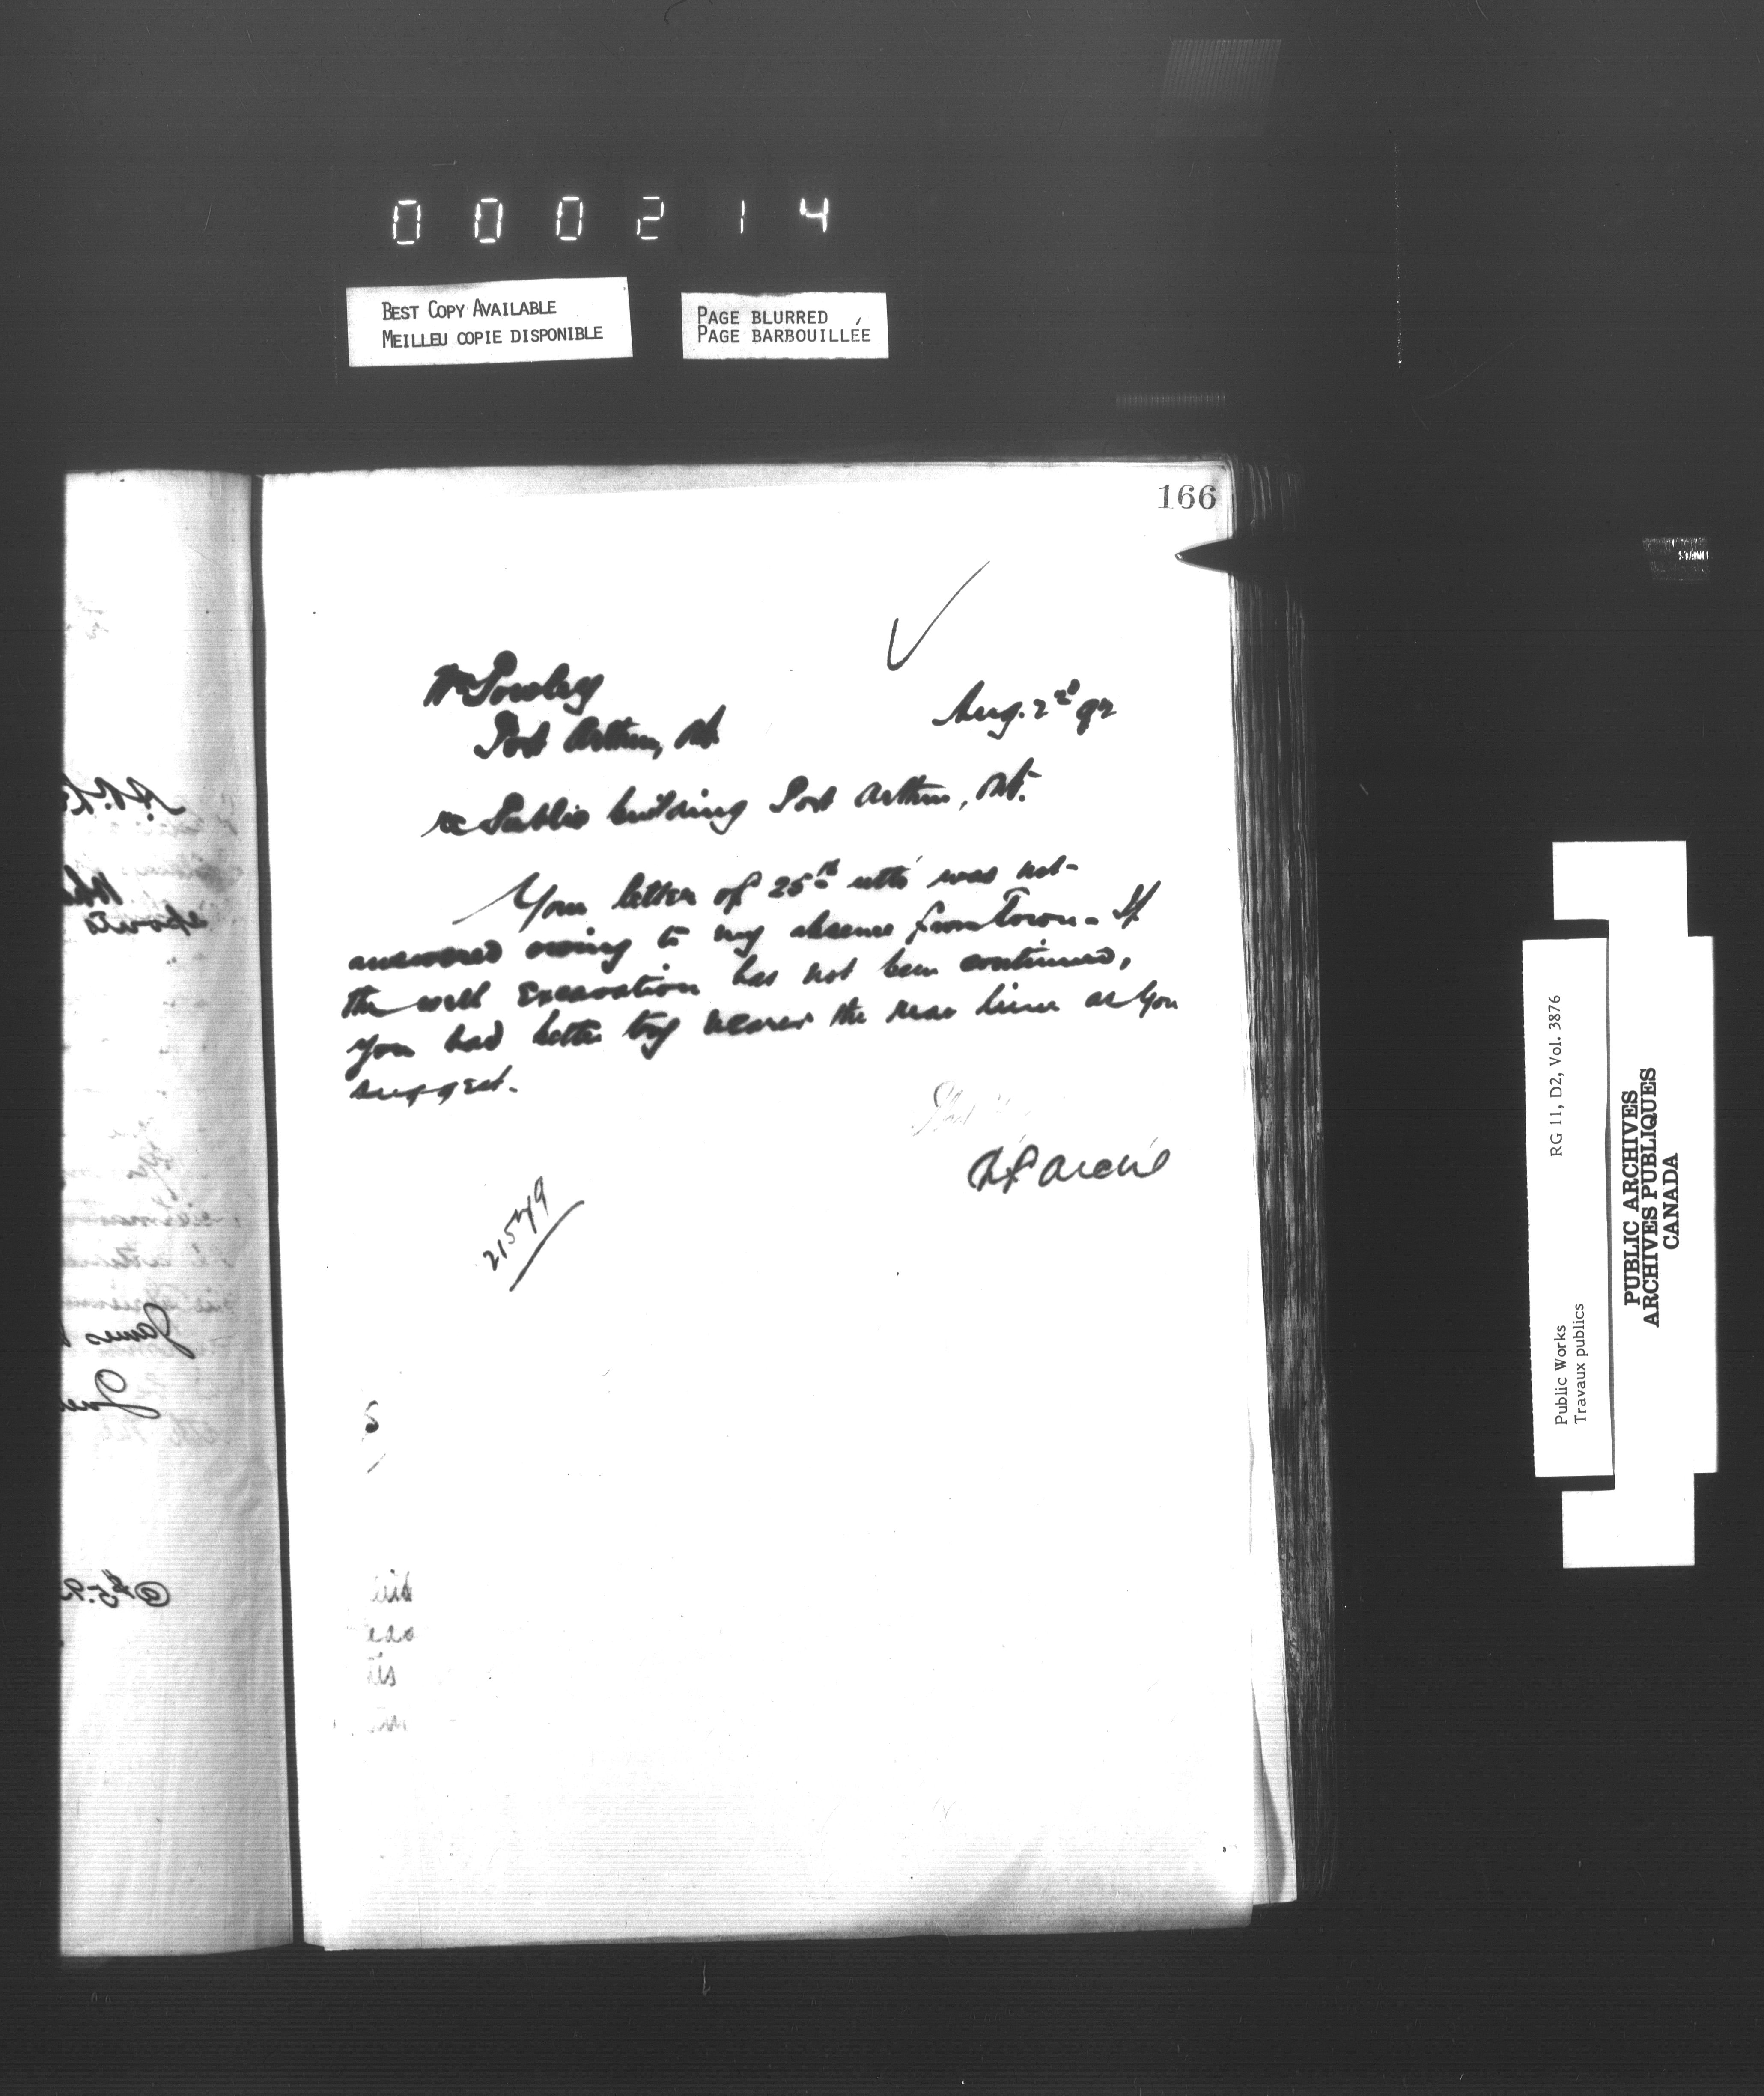 000214
BEST COPY AVAILABLE
MEILLEU COPIE DISPONIBLE
PAGE BLURRED
PAGE BARBOUILLÉE
166
Aug. 2nd 92
Port Arthur, Ont.
re Public building Port Arthur, Ont.
Your letter of 25th ulto was not
answered owing to my absence from Town - If
the well excavation has not been continued,
you had better try nearer the rear line as you
suggest.
21549
Public Works
Travaux publics
RG 11, D2, Vol. 3876
PUBLIC ARCHIVES
ARCHIVES PUBLIQUES
CANADA